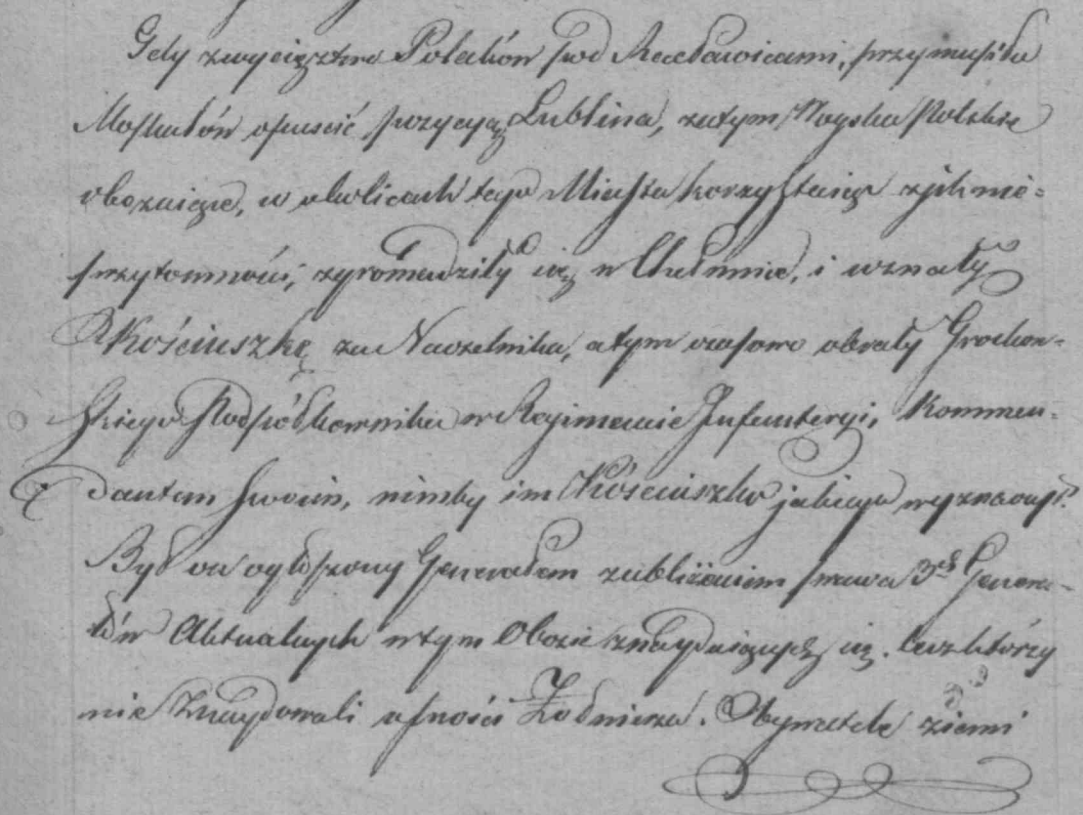 Gdy zwycięztwo Polaków pod Racławicami, przymusiło
Moskalów opuścić pozycyą Lublina, zatym Woyska Polskie
obozuiące, w okolicach tego Miasta korzystaiąc z ich nie=
przytomności, zgromadziły się w Chełmie, i uznały
Kościuszkę za Naczelnika, a tym czasowo obrały Grochow=
skiego Podpółkownika w Regimencie Infanteryi, Kommen=
dantem swoim, nimby im Kościuszko jakiego wyznaczył.
Był on ogłoszony Generałem z ubliżeniem prawa 3ch Genera=
łów Aktualnych w tym Obozie znayduiących się. lecz którzy
nie znaydowali ufności Żołnierza. Obywatele ziemi